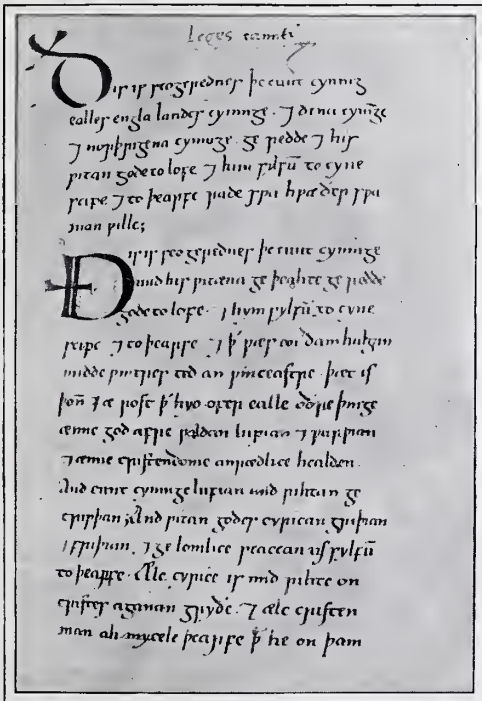 Leges canuti
Ðis is seo gerædnes þe cnut cyning
ealles engla landes cyninge. ⁊ dena cyninge
⁊ norþrigena cyninge. ge rædde ⁊ his
ƿitan gode to lofe ⁊ him sylfū to cyne
scipe. ⁊ to þearfe rade sƿa hƿæðer sƿa
man ƿille;
Ðis is seo gerædnes þe cnut cyninge
mid his ƿitena ge þeahte ge rædde
gode to lofe. ⁊ him sylfū to cyne
scipe ⁊ to þearfe ⁊ þꝥ ƿæs ðam halgan
midde ƿintres tid on ƿinceastre. þæt is
þoñ ⁊ æ rost ꝥ hyo ofer ealle oðre þinge
ænne god æfre ƿoldan lufian ⁊ ƿurþian
⁊ ænne cristendome anrædlice healden.
And cnut cyninge lufian mid rihtan ge
tryƿþan; And ƿitan godes cyrican griþian
⁊ friþian. ⁊ ge lomlice us sylfū
to þearfe. Ælc cyrice is mid rihte on
cristes agenan gryðe. ⁊ ælc cristen
man ah mycele þearfe ꝥ he on þam